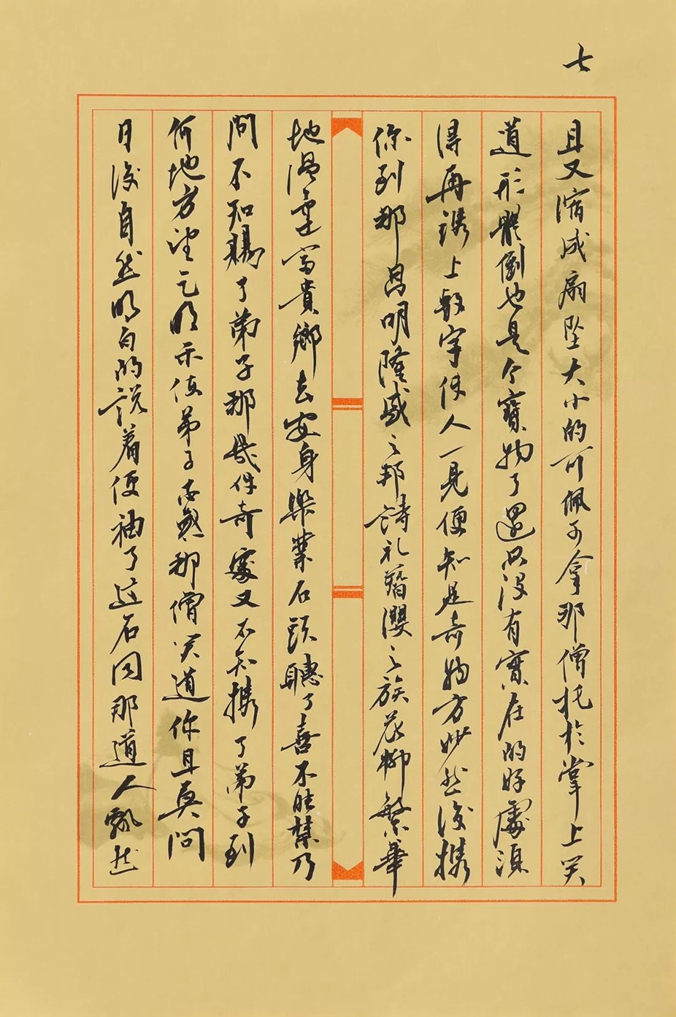 七
且又縮成扇墜大小的可佩可拿那僧托於掌上笑
道形體倒也是個寶物了還只没有實在的好處須
得再鐫上數字使人一見便知是奇物方妙然後携
你到那昌明隆盛之邦詩礼簪纓之族花柳繁華
地温柔富貴鄉去安身樂業石頭聽了喜不能禁乃
問不知賜了弟子那幾件奇處又不知携了弟子到
何地方望乞明示使弟子不惑那僧笑道你且莫問
日後自然明白的説着便袖了這石同那道人飄然